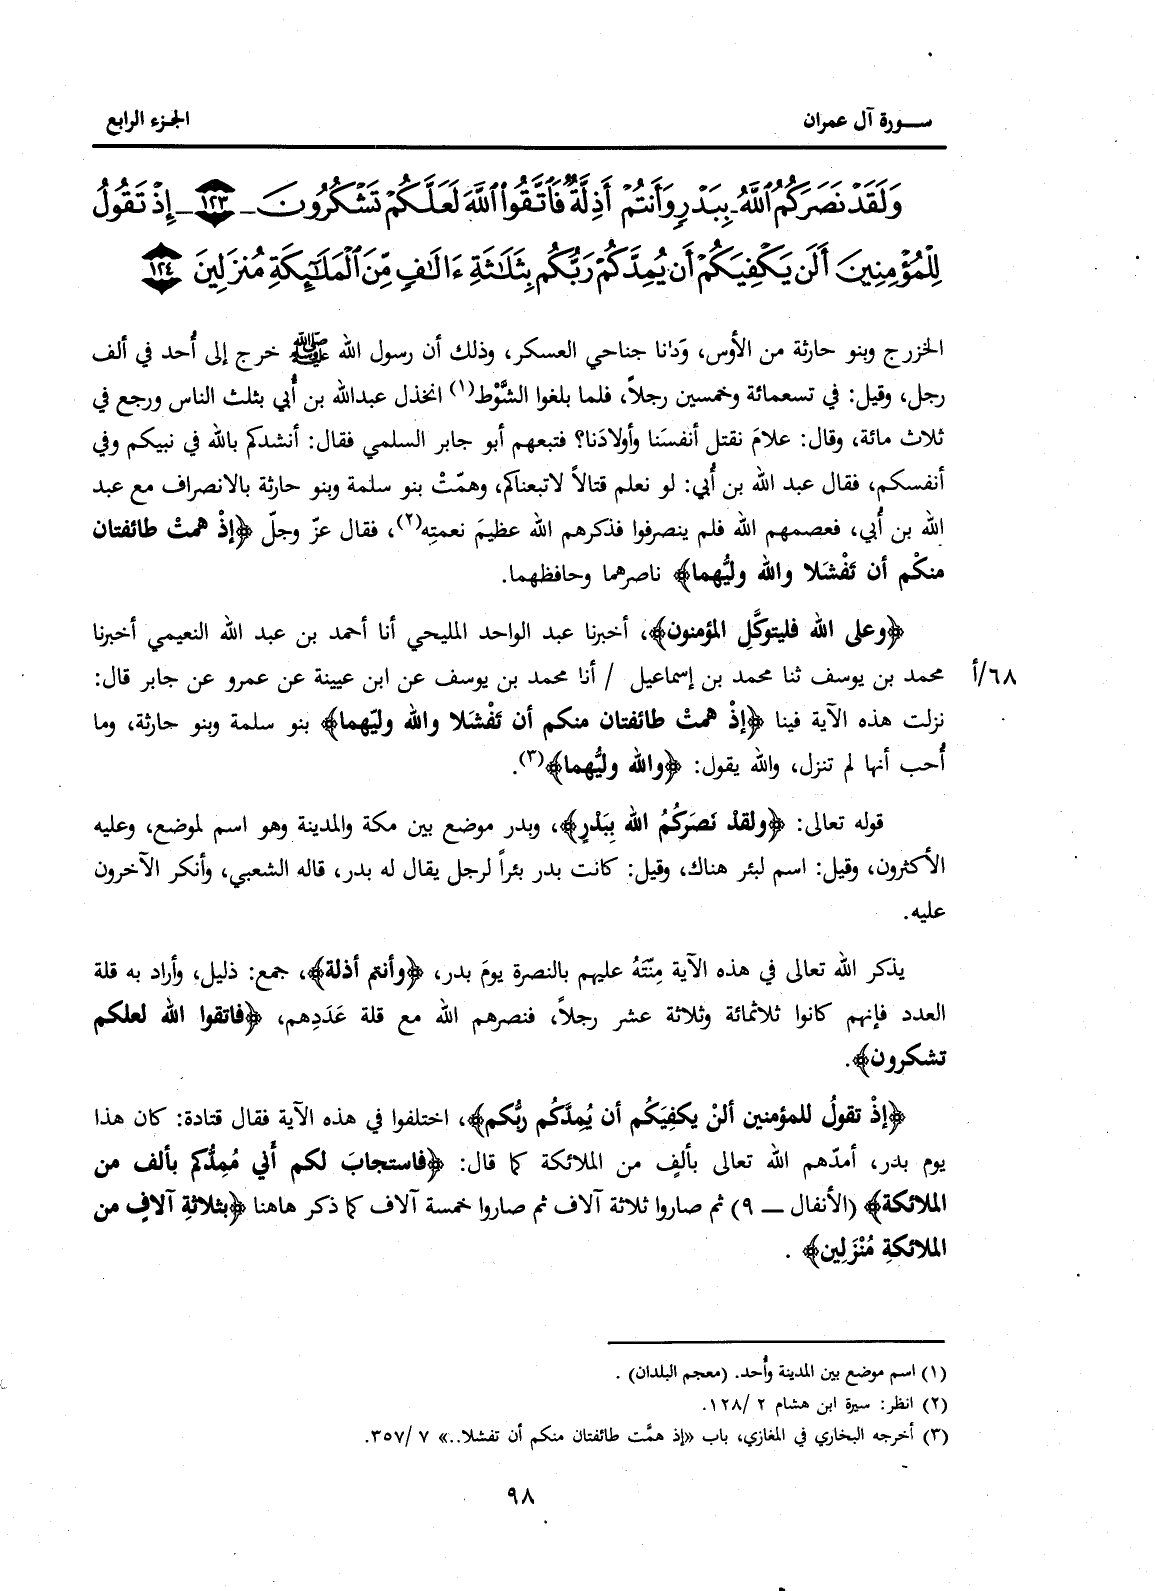 سورة آل عمران
الجزء الرابع
وَلَقَدْ نَصَرَكُمُ ٱللَّهُ بِبَدْرٍ وَأَنتُمْ أَذِلَّةٌ فَٱتَّقُوا۟ ٱللَّهَ لَعَلَّكُمْ تَشْكُرُونَ ١٢٣ إِذْ تَقُولُ
لِلْمُؤْمِنِينَ أَلَن يَكْفِيَكُمْ أَن يُمِدَّكُمْ رَبُّكُم بِثَلَـٰثَةِ ءَالَـٰفٍ مِّنَ ٱلْمَلَـٰٓئِكَةِ مُنزَلِينَ ١٢٤
الخزرج وبنو حارثة من الأوس، وَكانا جناحي العسكر، وذلك أن رسول الله ﷺ خرج إلى أُحد في ألف
رجل، وقيل: في تسعمائة وخمسين رجلاً، فلما بلغوا الشَّوْط(١) انخذل عبدالله بن أُبي بثلث الناس ورجع في
ثلاث مائة، وقال: علامَ نقتل أنفسَنا وأولادَنا؟ فتبعهم أبو جابر السلمي فقال: أنشدكم بالله في نبيكم وفي
أنفسكم، فقال عبد الله بن أُبي: لو نعلم قتالاً لاتبعناكم، وهمّتْ بنو سلمة وبنو حارثة بالانصراف مع عبد
الله بن أُبي، فعصمهم الله فلم ينصرفوا فذكرهم الله عظيمَ نعمتِه(٢)، فقال عزّ وجلّ ﴿إذْ همتْ طائفتان
منكْم أن تَفْشَلا والله وليُّهما﴾ ناصرهما وحافظهما.
﴿وعلى الله فليتوكَّلِ المؤمنون﴾، أخبرنا عبد الواحد المليحي أنا أحمد بن عبد الله النعيمي أخبرنا
محمد بن يوسف ثنا محمد بن إسماعيل / أنا محمد بن يوسف عن ابن عيينة عن عمرو عن جابر قال:
٦٨/أ
نزلت هذه الآية فينا ﴿إذْ همتْ طائفتان منكم أن تَفْشَلا والله وليّهما﴾ بنو سلمة وبنو حارثة، وما
أُحب أنها لم تنزل، والله يقول: ﴿والله وليُّهما﴾(٣).
قوله تعالى: ﴿ولقدْ نَصَرَكُمُ الله بِبَدْرٍ﴾، وبدر موضع بين مكة والمدينة وهو اسم لموضع، وعليه
الأكثرون، وقيل: اسم لبئر هناك، وقيل: كانت بدر بئراً لرجل يقال له بدر، قاله الشعبي، وأنكر الآخرون
عليه.
يذكر الله تعالى في هذه الآية مِنّتَهُ عليهم بالنصرة يومَ بدر، ﴿وأنتم أذلة﴾، جمع: ذليل، وأراد به قلة
العدد فإنهم كانوا ثلاثمائة وثلاثة عشر رجلاً، فنصرهم الله مع قلة عَدَدِهم، ﴿فاتقوا الله لعلكم
تشكرون﴾.
﴿إذْ تقولُ للمؤمنين ألنْ يكفِيَكُم أن يُمِدَّكُم ربُّكم﴾، اختلفوا في هذه الآية فقال قتادة: كان هذا
يوم بدر، أمدّهم الله تعالى بألفٍ من الملائكة كما قال: ﴿فاستجابَ لكم أَني مُمِدُّكم بألف من
الملائكة﴾ (الأنفال ــ ٩) ثم صاروا ثلاثة آلاف ثم صاروا خمسة آلاف كما ذكر هاهنا ﴿بثلاثةِ آلافٍ من
الملائكةِ مُنْزَلِين﴾ .
(١) اسم موضع بين المدينة وأُحد. (معجم البلدان) .
(٢) انظر: سيرة ابن هشام ٢ /١٢٨.
(٣) أخرجه البخاري في المغازي، باب «إذ همَّت طائفتان منكم أن تفشلا..» ٧ /٣٥٧.
٩٨